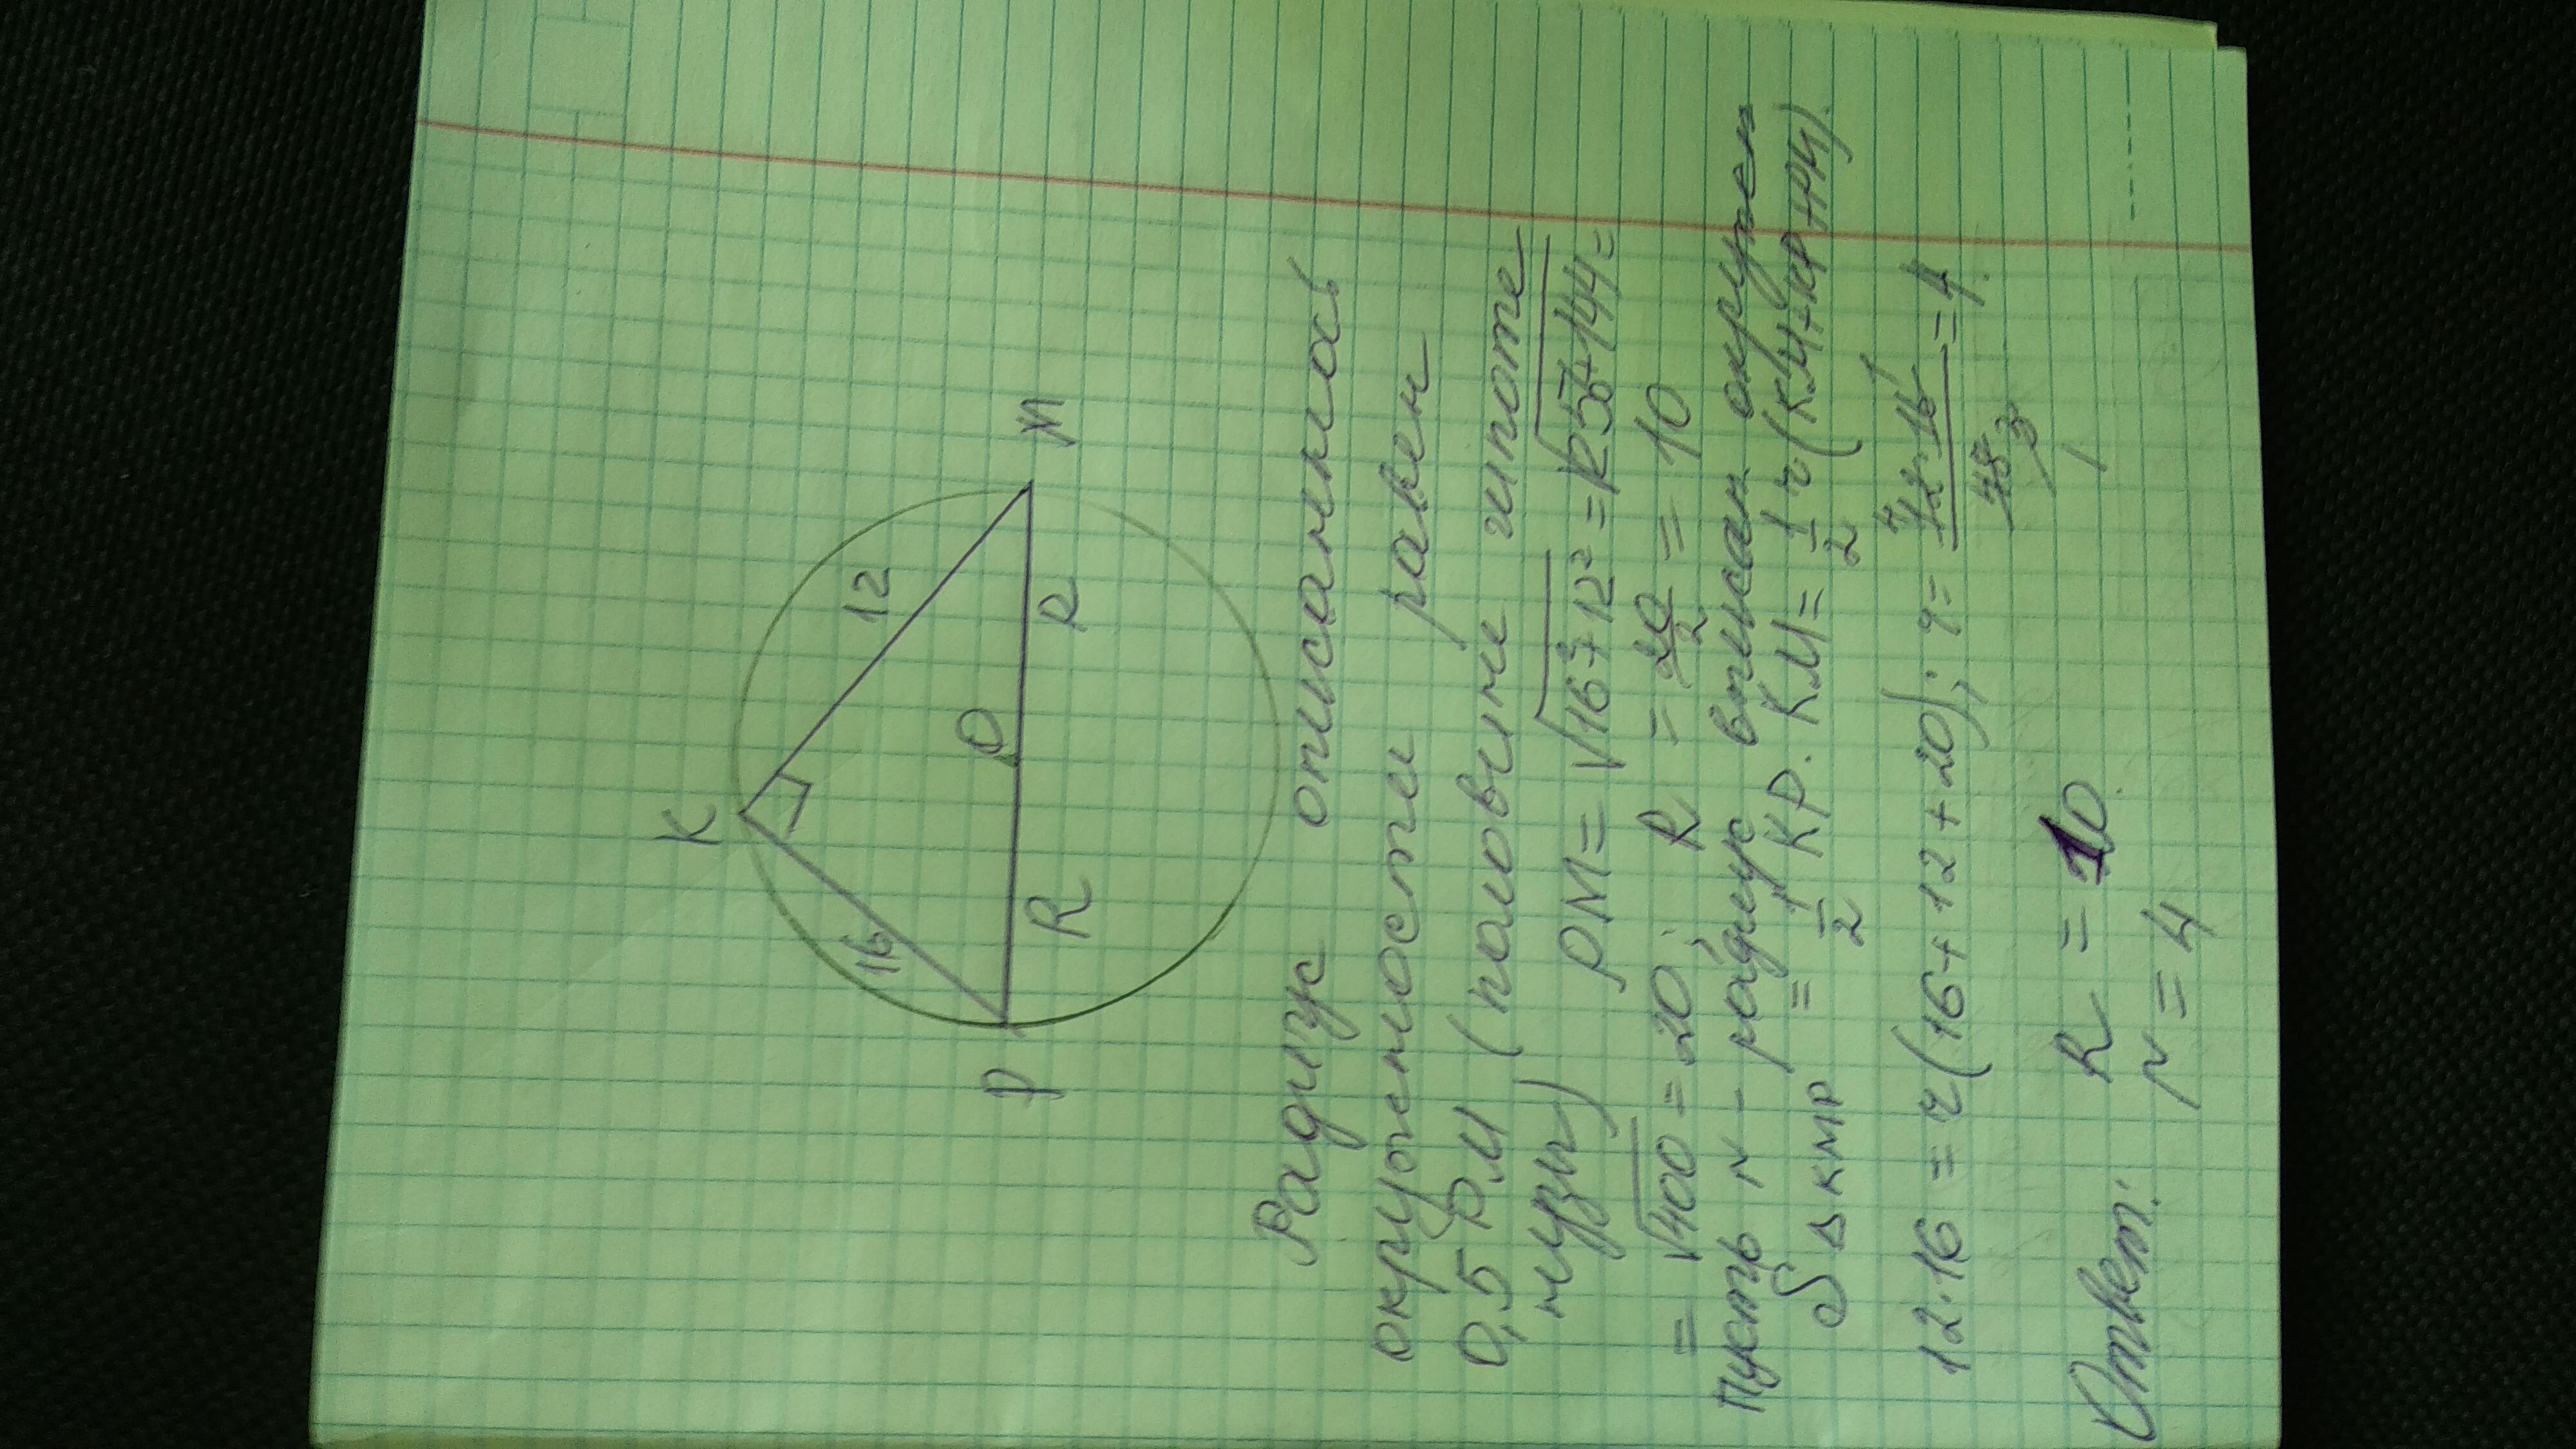 K
16
12
P
O
M
R
R
Радиус описанность
окружености равен
0,5 PM (половине гипоте
нузы) PM = √16²+12² = √256+144 =
= √400 = 20; R = 20/2 = 10
Пусть r - радиус вписан окружен
S Δ KMP = 1/2 KP · KM = 1/2 r (KM+KP+PM).
12·16 = r (16+12+20); r = 12·16/48 = 4.
4 1
3
1
Ответ: R = 10.
r = 4